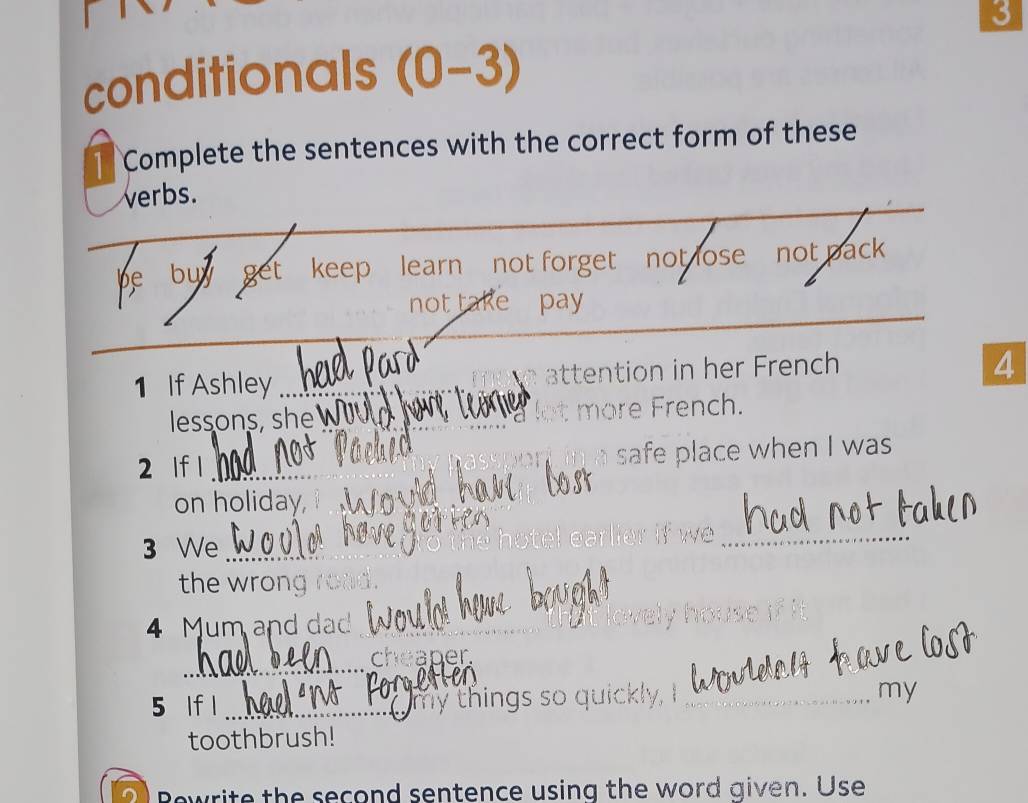 3
conditionals (0-3)
1 Complete the sentences with the correct form of these
verbs.
be buy get keep learn not forget not lose not pack
not take pay
1 If Ashley had Pard more attention in her French
lessons, she would have learned a lot more French.
2 If I had not Packed my passport in a safe place when I was
on holiday, I would have lost
3 We would have gotten to the hotel earlier if we had not taken
the wrong road.
4 Mum and dad would have bought that lovely house if it
had been cheaper.
5 If I had'nt Forgetten my things so quickly, I have lost my
toothbrush!
2 Rewrite the second sentence using the word given. Use
4